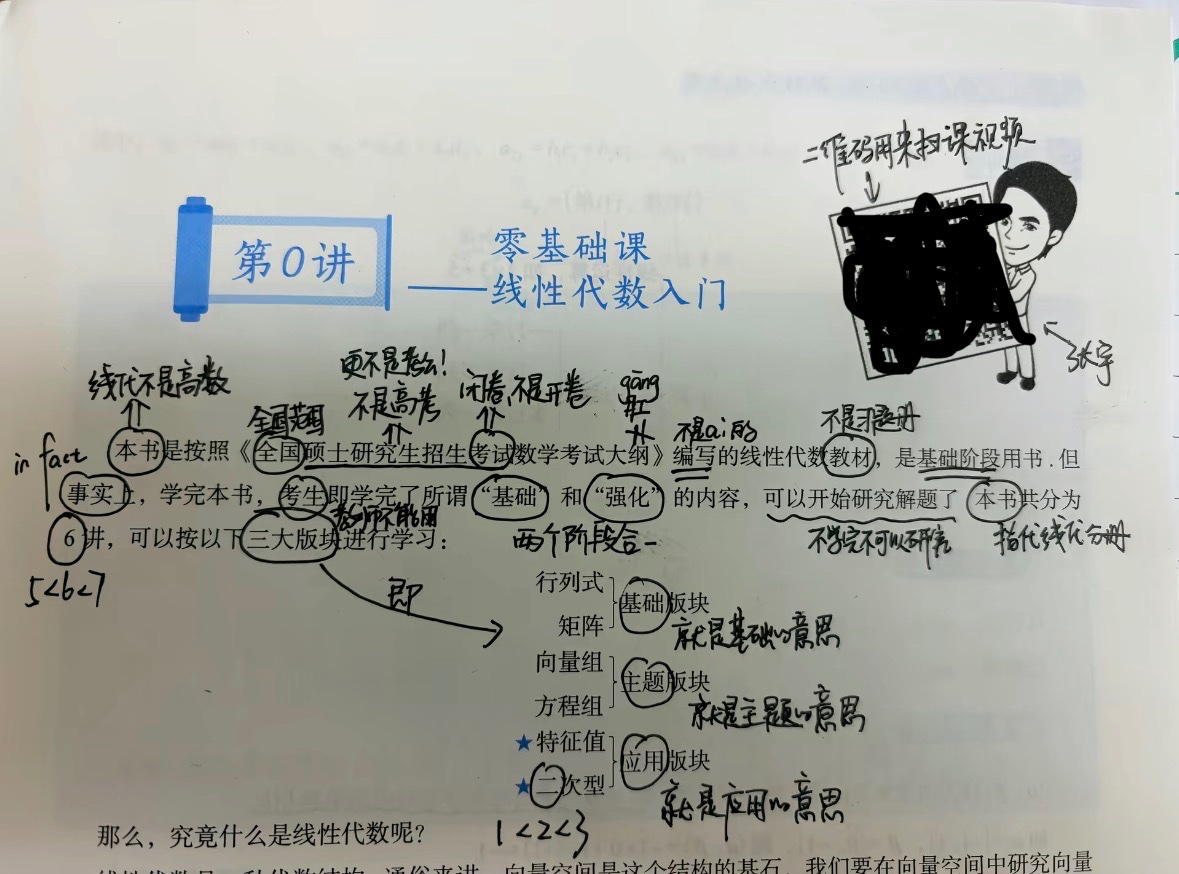 二维码用来扫课视频
第0讲
零基础课
——线性代数入门
张宇
线代不是高数
更不是考公!
不是高考
闭卷,不是开卷
gāng
全国范围
不是ai的
不是习题册
in fact
本书是按照《全国硕士研究生招生考试数学考试大纲》编写的线性代数教材,是基础阶段用书.但
事实上,学完本书,考生即学完了所谓“基础”和“强化”的内容,可以开始研究解题了 本书共分为
教师不能用
6讲,可以按以下三大版块进行学习:
两个阶段合一
不学完不可以研究
指代线代分册
5<6<7
即
行列式
矩阵
基础版块
就是基础的意思
向量组
方程组
主题版块
就是主题的意思
★特征值
★二次型
应用版块
就是应用的意思
1<2<3
那么,究竟什么是线性代数呢?
线性代数是一种代数结构,通俗来讲,向量空间是这个结构的基石,我们要在向量空间中研究向量